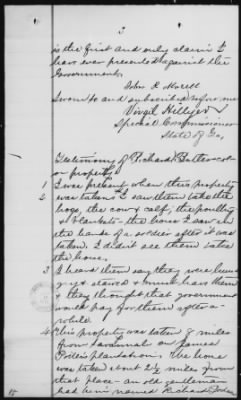 2
is the first and only claim I
have ever presented against the
Government.
John R Morell
Sworn to and subscribed before me
Virgil Hillyer
Special Commissioner
State of Ga,
Testimony of Richard Butler
property
1 I was present when this property
2 was taken I saw them take the
hogs, the cow & calf, the poultry
& blankets - the horse I saw in
the hands of a soldier after it was
taken. I didn't see them take
the horse.
3 I heard them say they were
& must have them
& they thought that government
would pay for them after a
while
4 This property was taken 8 miles
from Savannah on James
plantation. The horse
was taken about 2½ miles from
that place - an old gentleman
had been named Richard